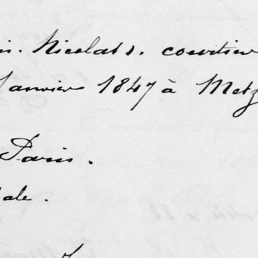 Nicolas s. courtier
Janvier 1847 à Metz
Paris.
ale.